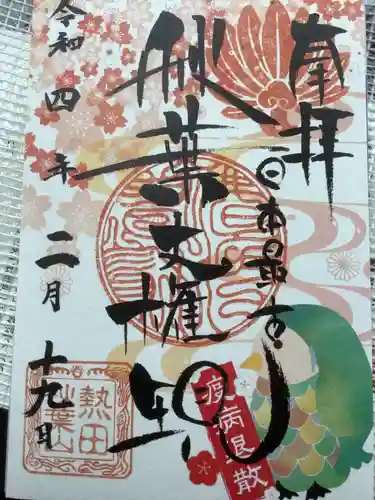 奉拝
日本最古
秋葉大権現
令和四年二月十九日
疫病退散
熱田
秋葉山